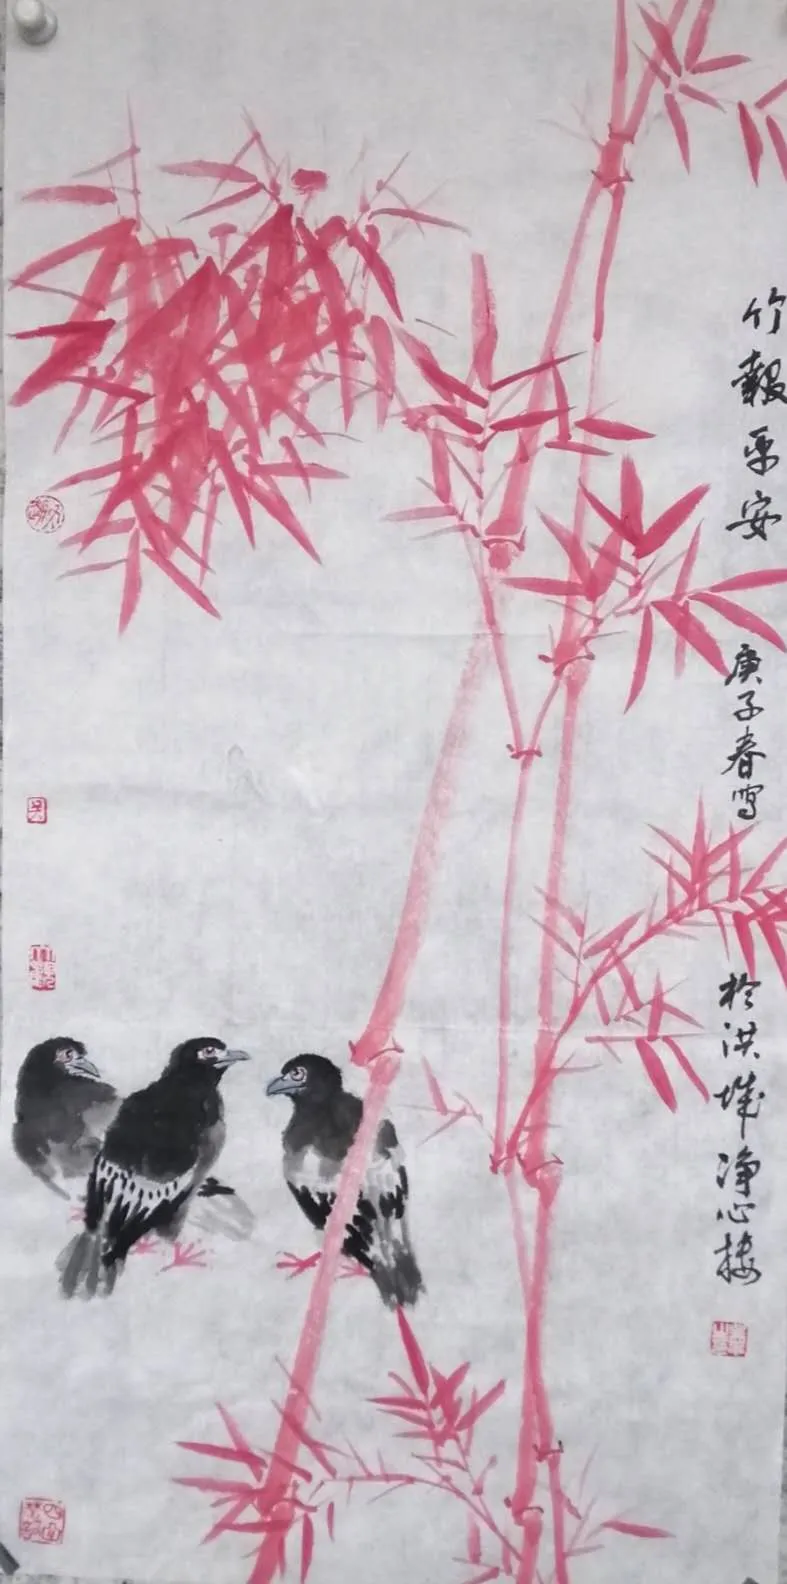 竹報平安
庚子春写
於洪城净心楼